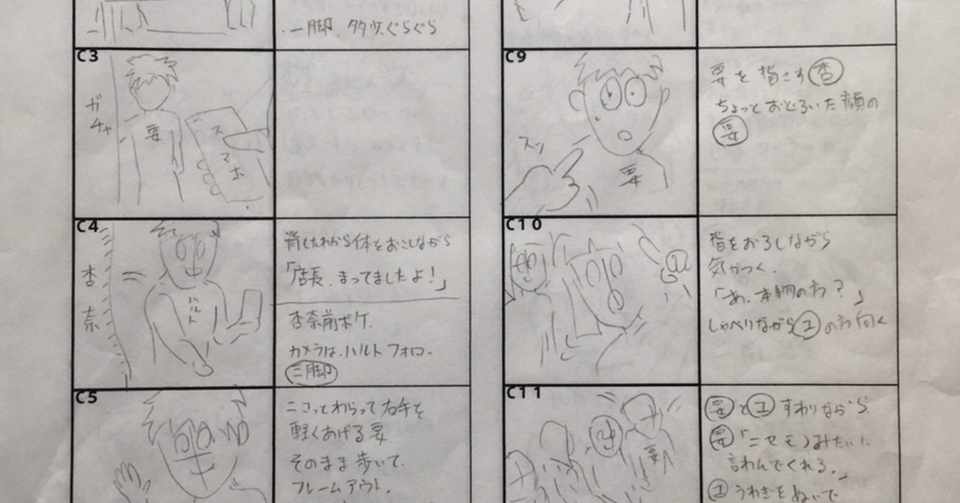 一脚、多少ぐらぐら
C3
ガチャ
要
スマホ
C4
杏奈
ハルト
背もたれから体をおこしながら
「店長、まってましたよ!」
杏奈前ボケ.
カメラは、ハルトフォロー.
三脚
C5
ニコっとわらって右手を
軽くあげる要
そのまま歩いて.
フレームアウト.
C9
スッ
要
要を指さす杏
ちょっとおどろいた顔の
要
C10
指をおろしながら
気がつく.
「あ、本物のわ?」
しゃべりながらユの方向く
C11
要
要とユすわりながら
要「ニセモノみたいに
言わんでくれる.」
ユうわぎをぬいで